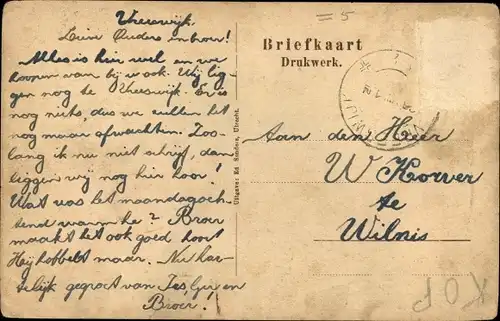 Vreeswijk.
Lieve Ouders en broer!
Alles is hier wel en we
hoopen van bij u ook. Wij lig-
gen nog te Vreeswijk. Er is
nog niets, dus we zullen het
nog maar afwachten. Zoo-
lang ik nu niet schrijf, dan
liggen wij nog hier hoor!
Wat was het maandagoch-
tend warm he? Broer
maakt het ook goed hoor
Hij hobbelt maar. Nu har-
telijk gegroet van Jes, Ger en
Broer!
Uitgave: Ed Sanders, Utrecht.
= 5
Briefkaart
Drukwerk.
Aan den Heer
W Korver
te
Wilnis
KOP